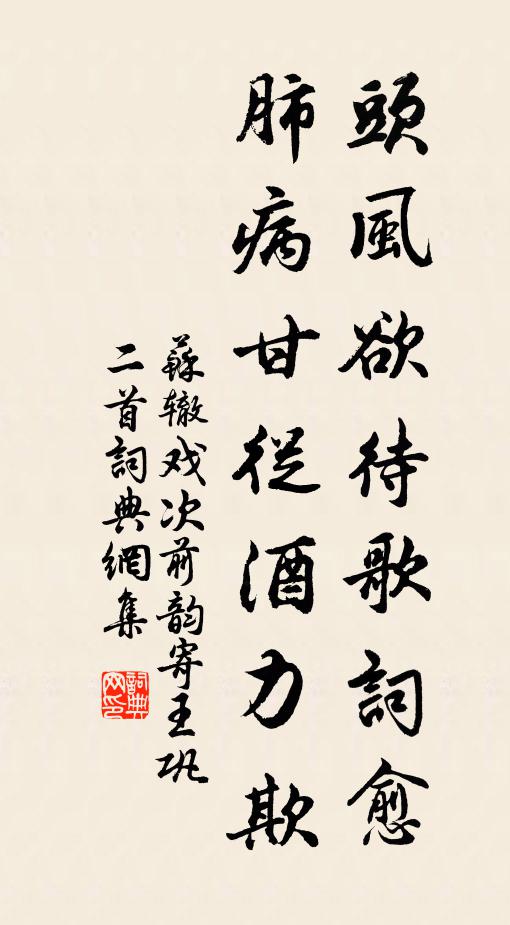 頭風欲待歌詞愈
肺病甘從酒力欺
蘇轍戏次前韵寄王巩
二首詞典網集
詞典
网印